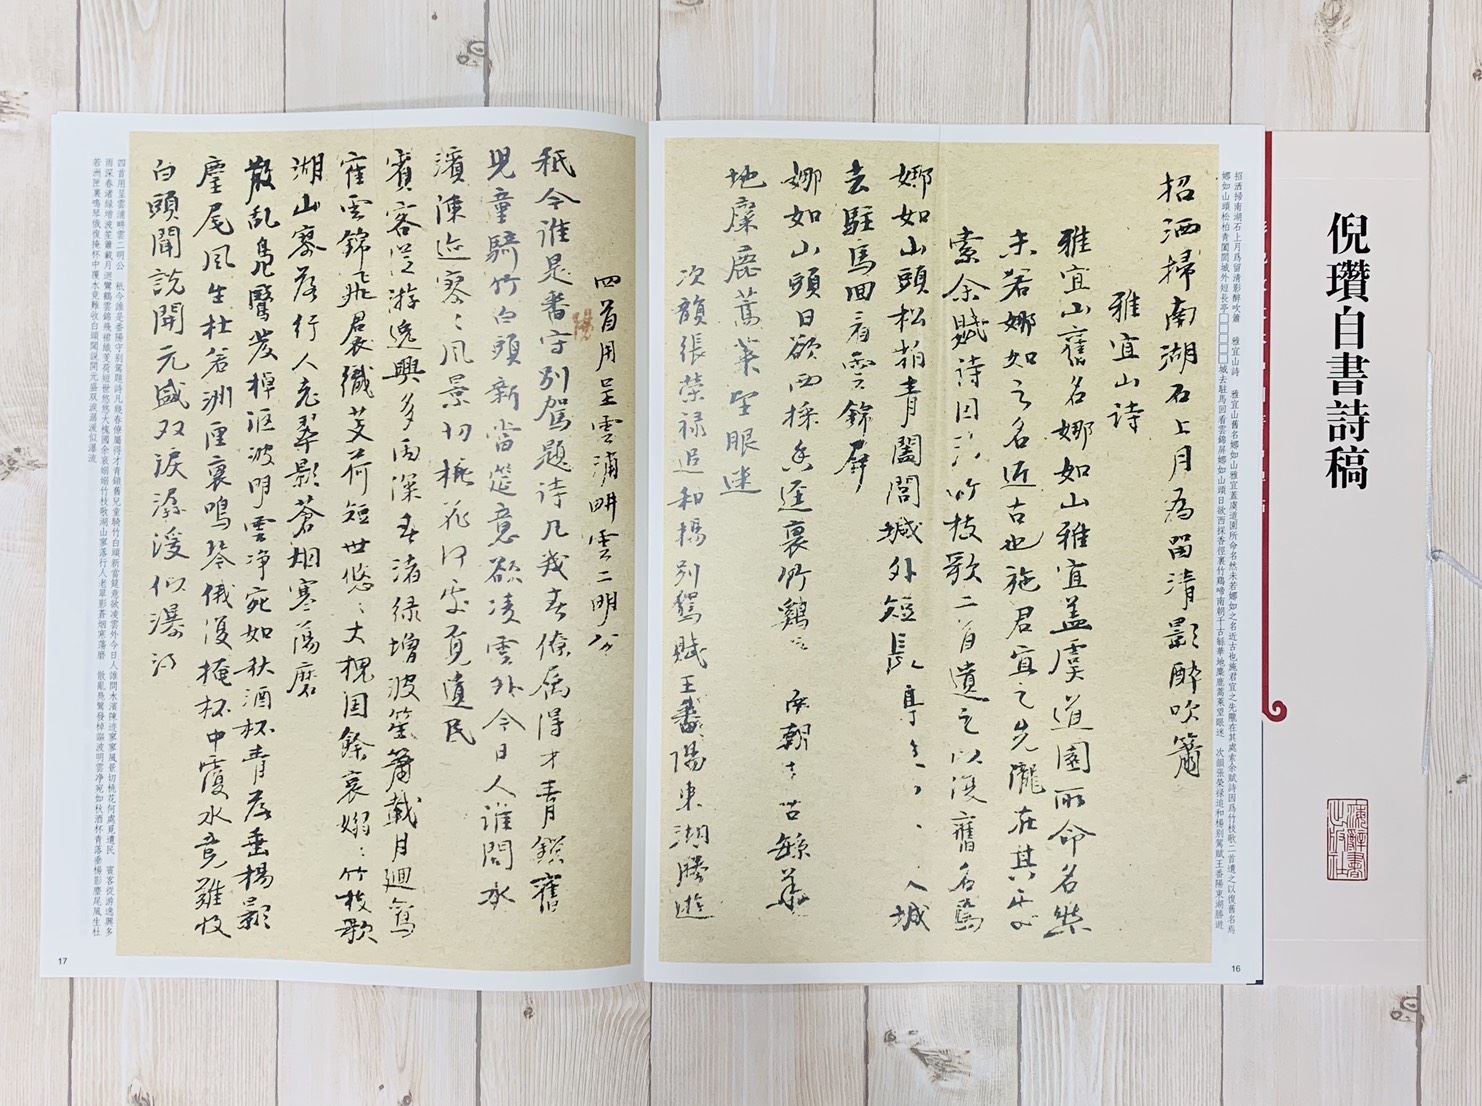 倪瓚自書詩稿
上海辭書出版社
招洒掃南湖石上月爲留清影醉吹簫
雅宜山詩
雅宜山舊名娜如山雅宜蓋虞道園所命名然
未若娜如之名近古也施君宜之先隴在其處
索余賦詩因爲竹枝歌二首遺之以復舊名焉
娜如山頭松柏青闔閭城外短長亭
城
去駐馬回看雲錦屏
娜如山頭日欲西採香徑裏竹鷄啼南朝千古繇華
地麋鹿蒿萊望眼迷
次韻張榮祿追和楊別駕賦王番陽東湖勝遊
四首用呈雲浦耕雲二明公
秖今誰是番守別駕題詩凡幾春僚屬得才青鎖舊
兒童騎竹白頭新當筵意欲凌雲外今日人誰問水
濱陳迹寥寥風景切桃花何處覓遺民
賓客從游逸興多雨深春渚緑增波笙簫載月迴鴛
雲錦飛裙織芰荷短世悠悠大槐國餘哀嫋嫋竹枝歌
湖山寥落行人老翠影蒼烟寒蕩磨
散亂鳧鷖發棹謳波明雲净宛如秋酒杯青落垂楊影
麈尾風生杜若洲匣裏鳴琴俄復掩杯中覆水竟難收
白頭聞説開元盛双淚潺湲似瀑流
16
17